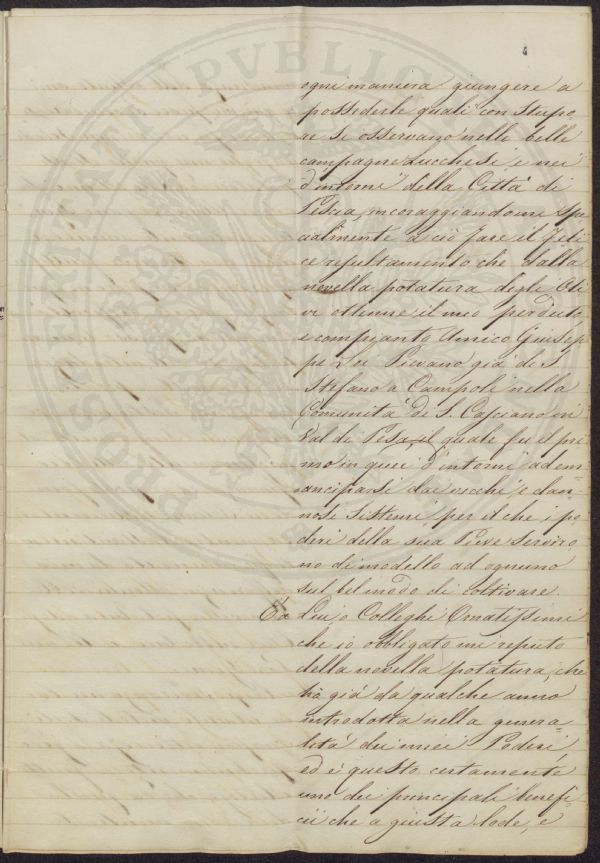 ogni maniera giungere a
possederle quali con stupo¸
re si osservano nelle belle
campagne Lucchesi, e nei
d'intorni della Città di
Pescia, incoraggiandomi spe
cialmente a ciò fare il feli
ce resultamento che dalla
novella potatura degli Oli
vi ottenne il mio perduto
e compianto Amico Giusep
pe Pievano già di S.
Stefano a Campoli nella
Comunità di S. Casciano in
Val di Pesa, il quale fu il pri
mo in quei d'intorni ad em
anciparsi dai vecchi, e dan¸
nosi sistemi, per il che i po
deri della sua Pieve serviro¸
no di modello ad ognuno
sul bel modo di coltivare.
È a Lui o Colleghi Ornatissimi
che io obbligato mi reputo
della novella potatura, che
hò già da qualche anno
introdotta nella genera¸
lità dei miei Poderi,
ed è questo certamente
uno dei principali benefi¸
cii che a giusta lode, e
PROSPERITATI PVBLIC